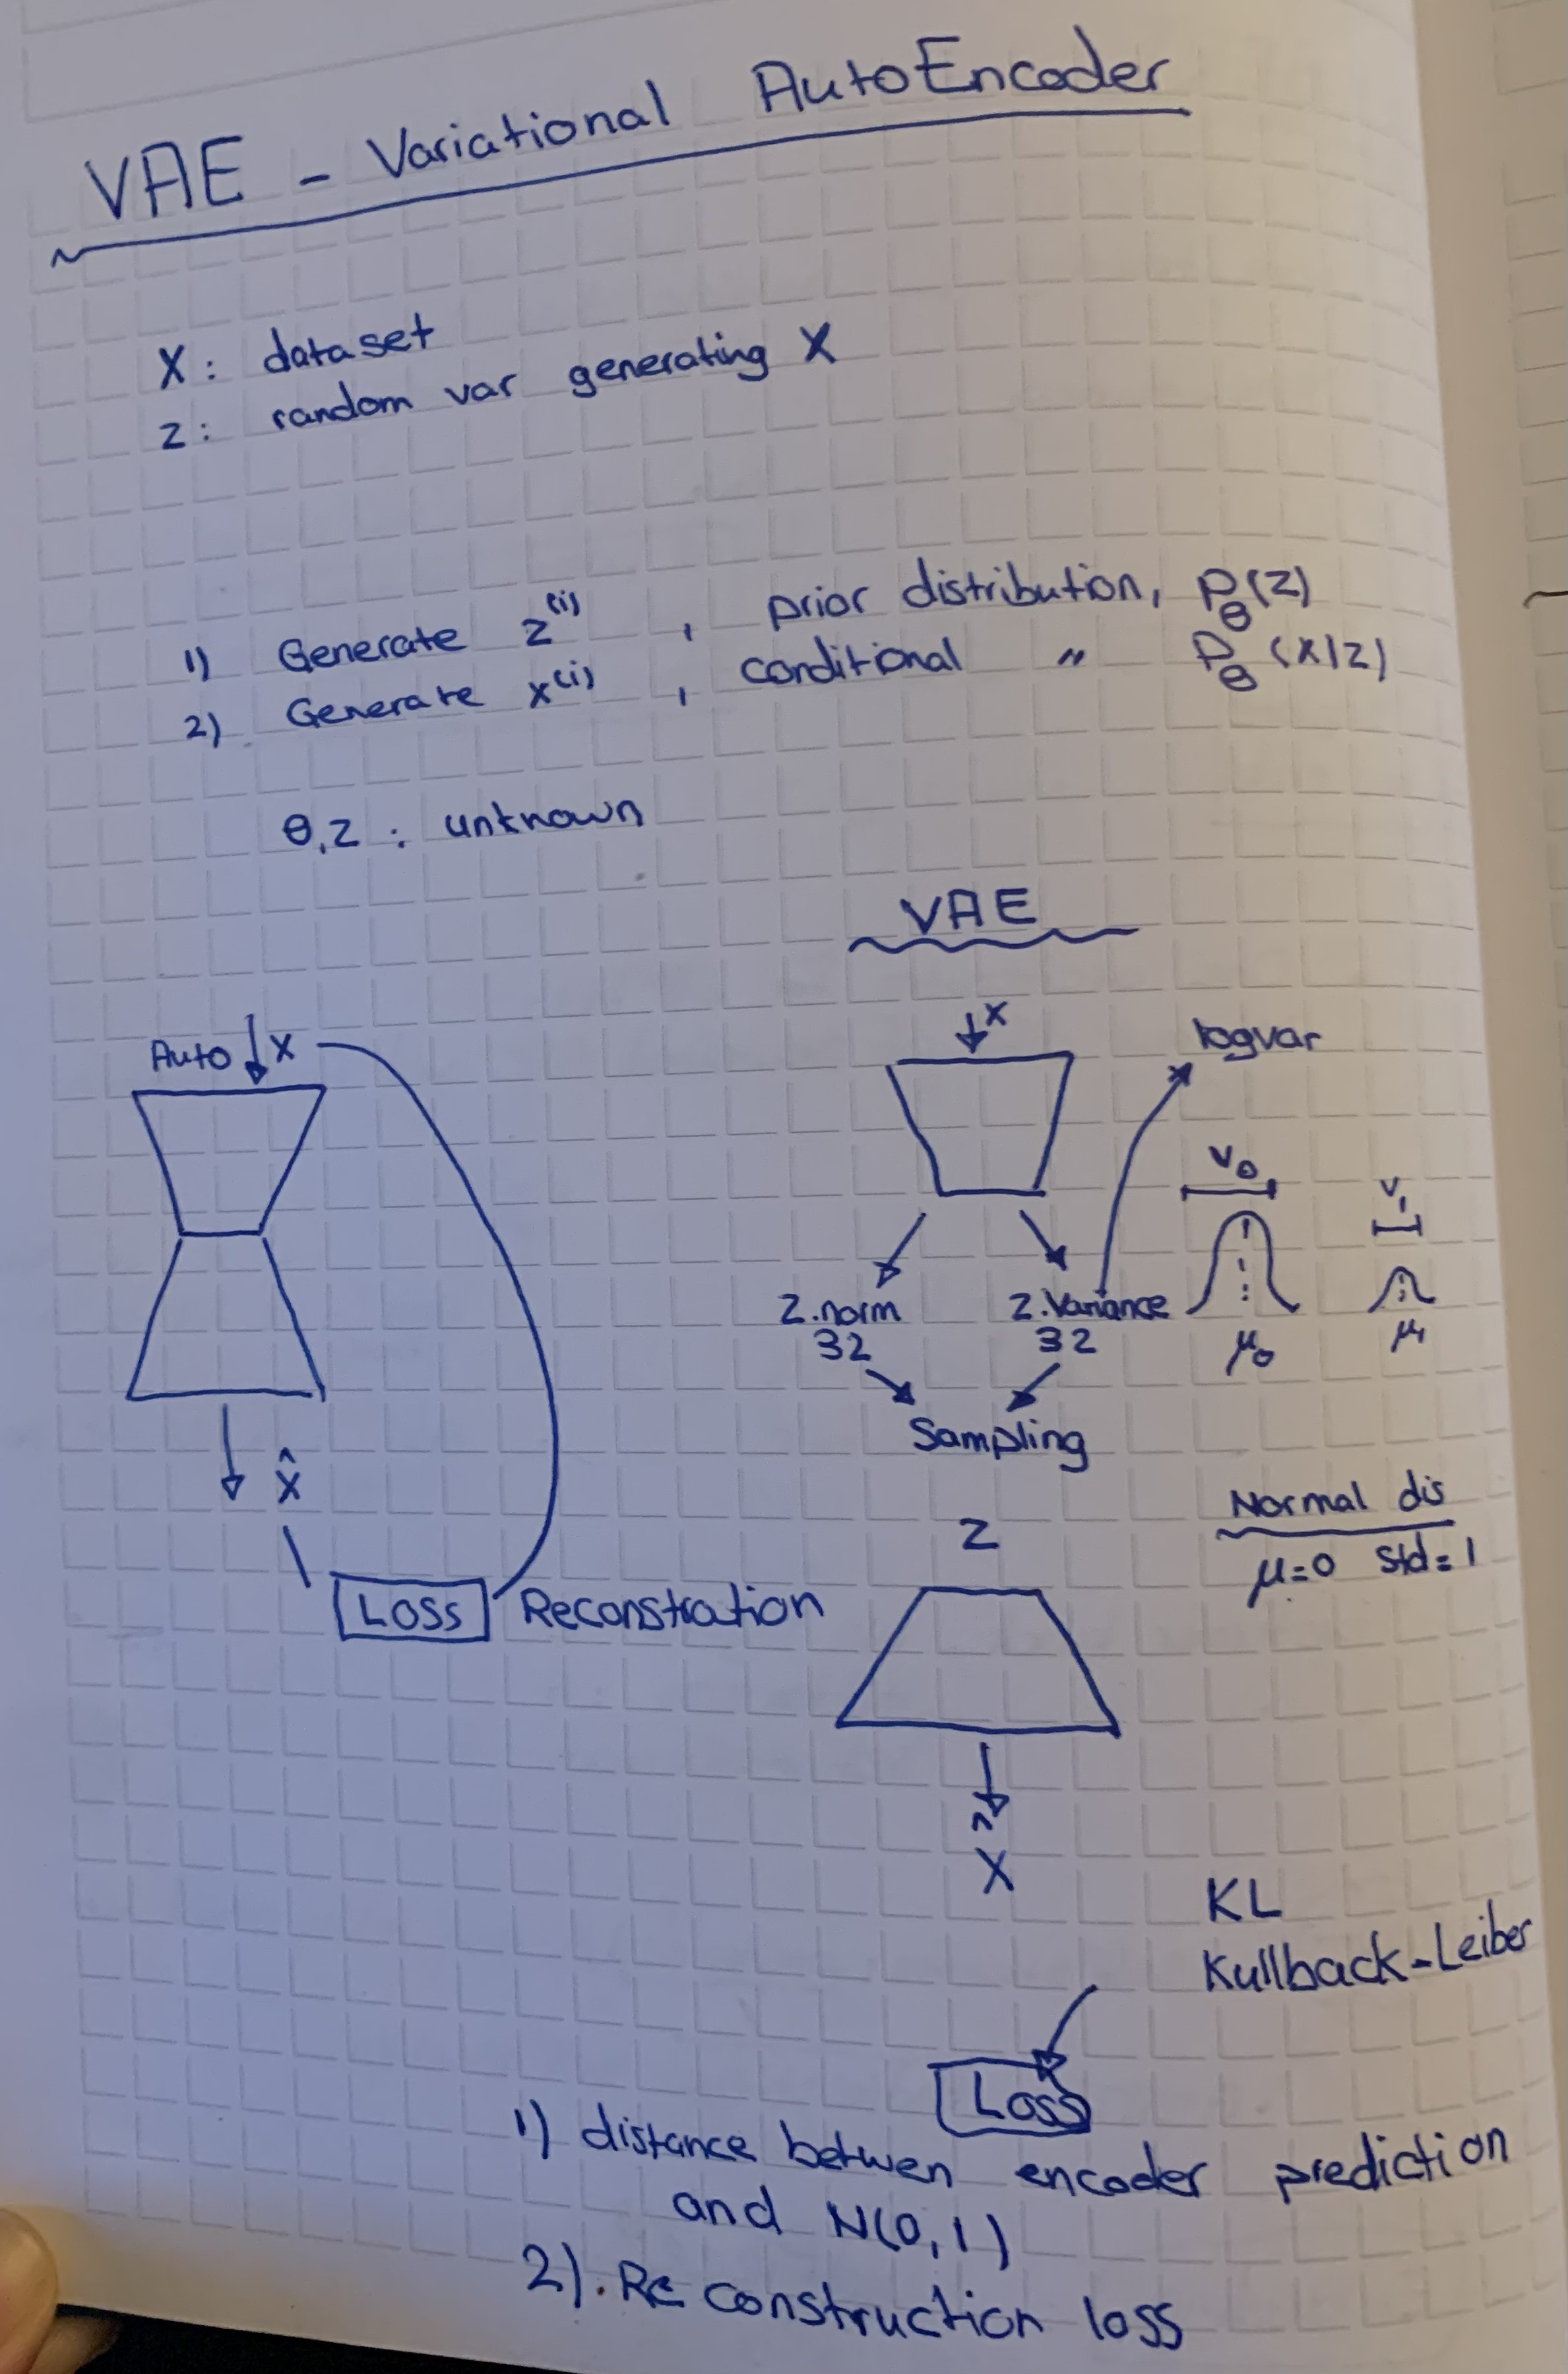 VAE - Variational AutoEncoder
X: dataset
z: random var generating X
1) Generate z^(i) , prior distribution, P_θ(z)
2) Generate x^(i) , conditional " P_θ(x|z)
θ,z : unknown
VAE
Auto X
X
logvar
V₀
V₁
Z.norm
32
Z.Variance
32
μ₀
μ₁
Sampling
X̂
Normal dis
μ=0 Std=1
Z
Loss Reconstration
X̂
KL
Kullback-Leiber
Loss
1) distance betwen encoder prediction
and N(0,1)
2). Reconstruction loss